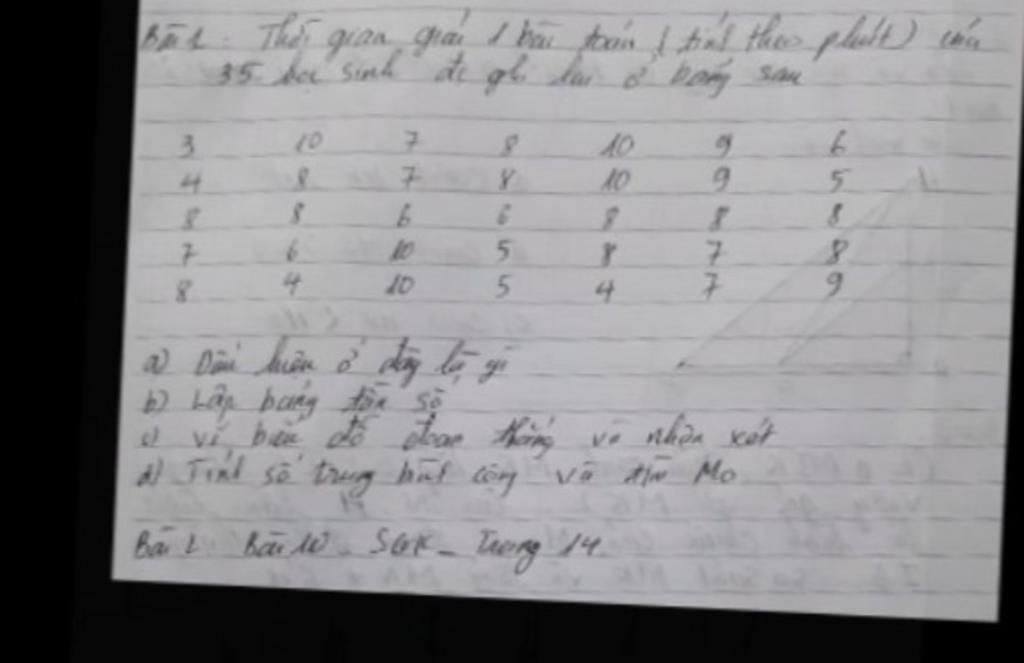 Bài 1: Thời gian giải 1 bài toán (tính theo phút) của
35 học sinh đc ghi lại ở bảng sau
3 10 7 8 10 9 6
4 8 7 8 10 9 5
8 8 6 6 8 8 8
7 6 10 5 8 7 8
8 4 10 5 4 7 9
a) Dấu hiệu ở đây là gì
b) Lập bảng tần số
c) vẽ biểu đồ đoạn thẳng và nhận xét
d) Tính số trung bình cộng và tìm Mo
Bài 2 Bài 10 - SGK - Trang 14